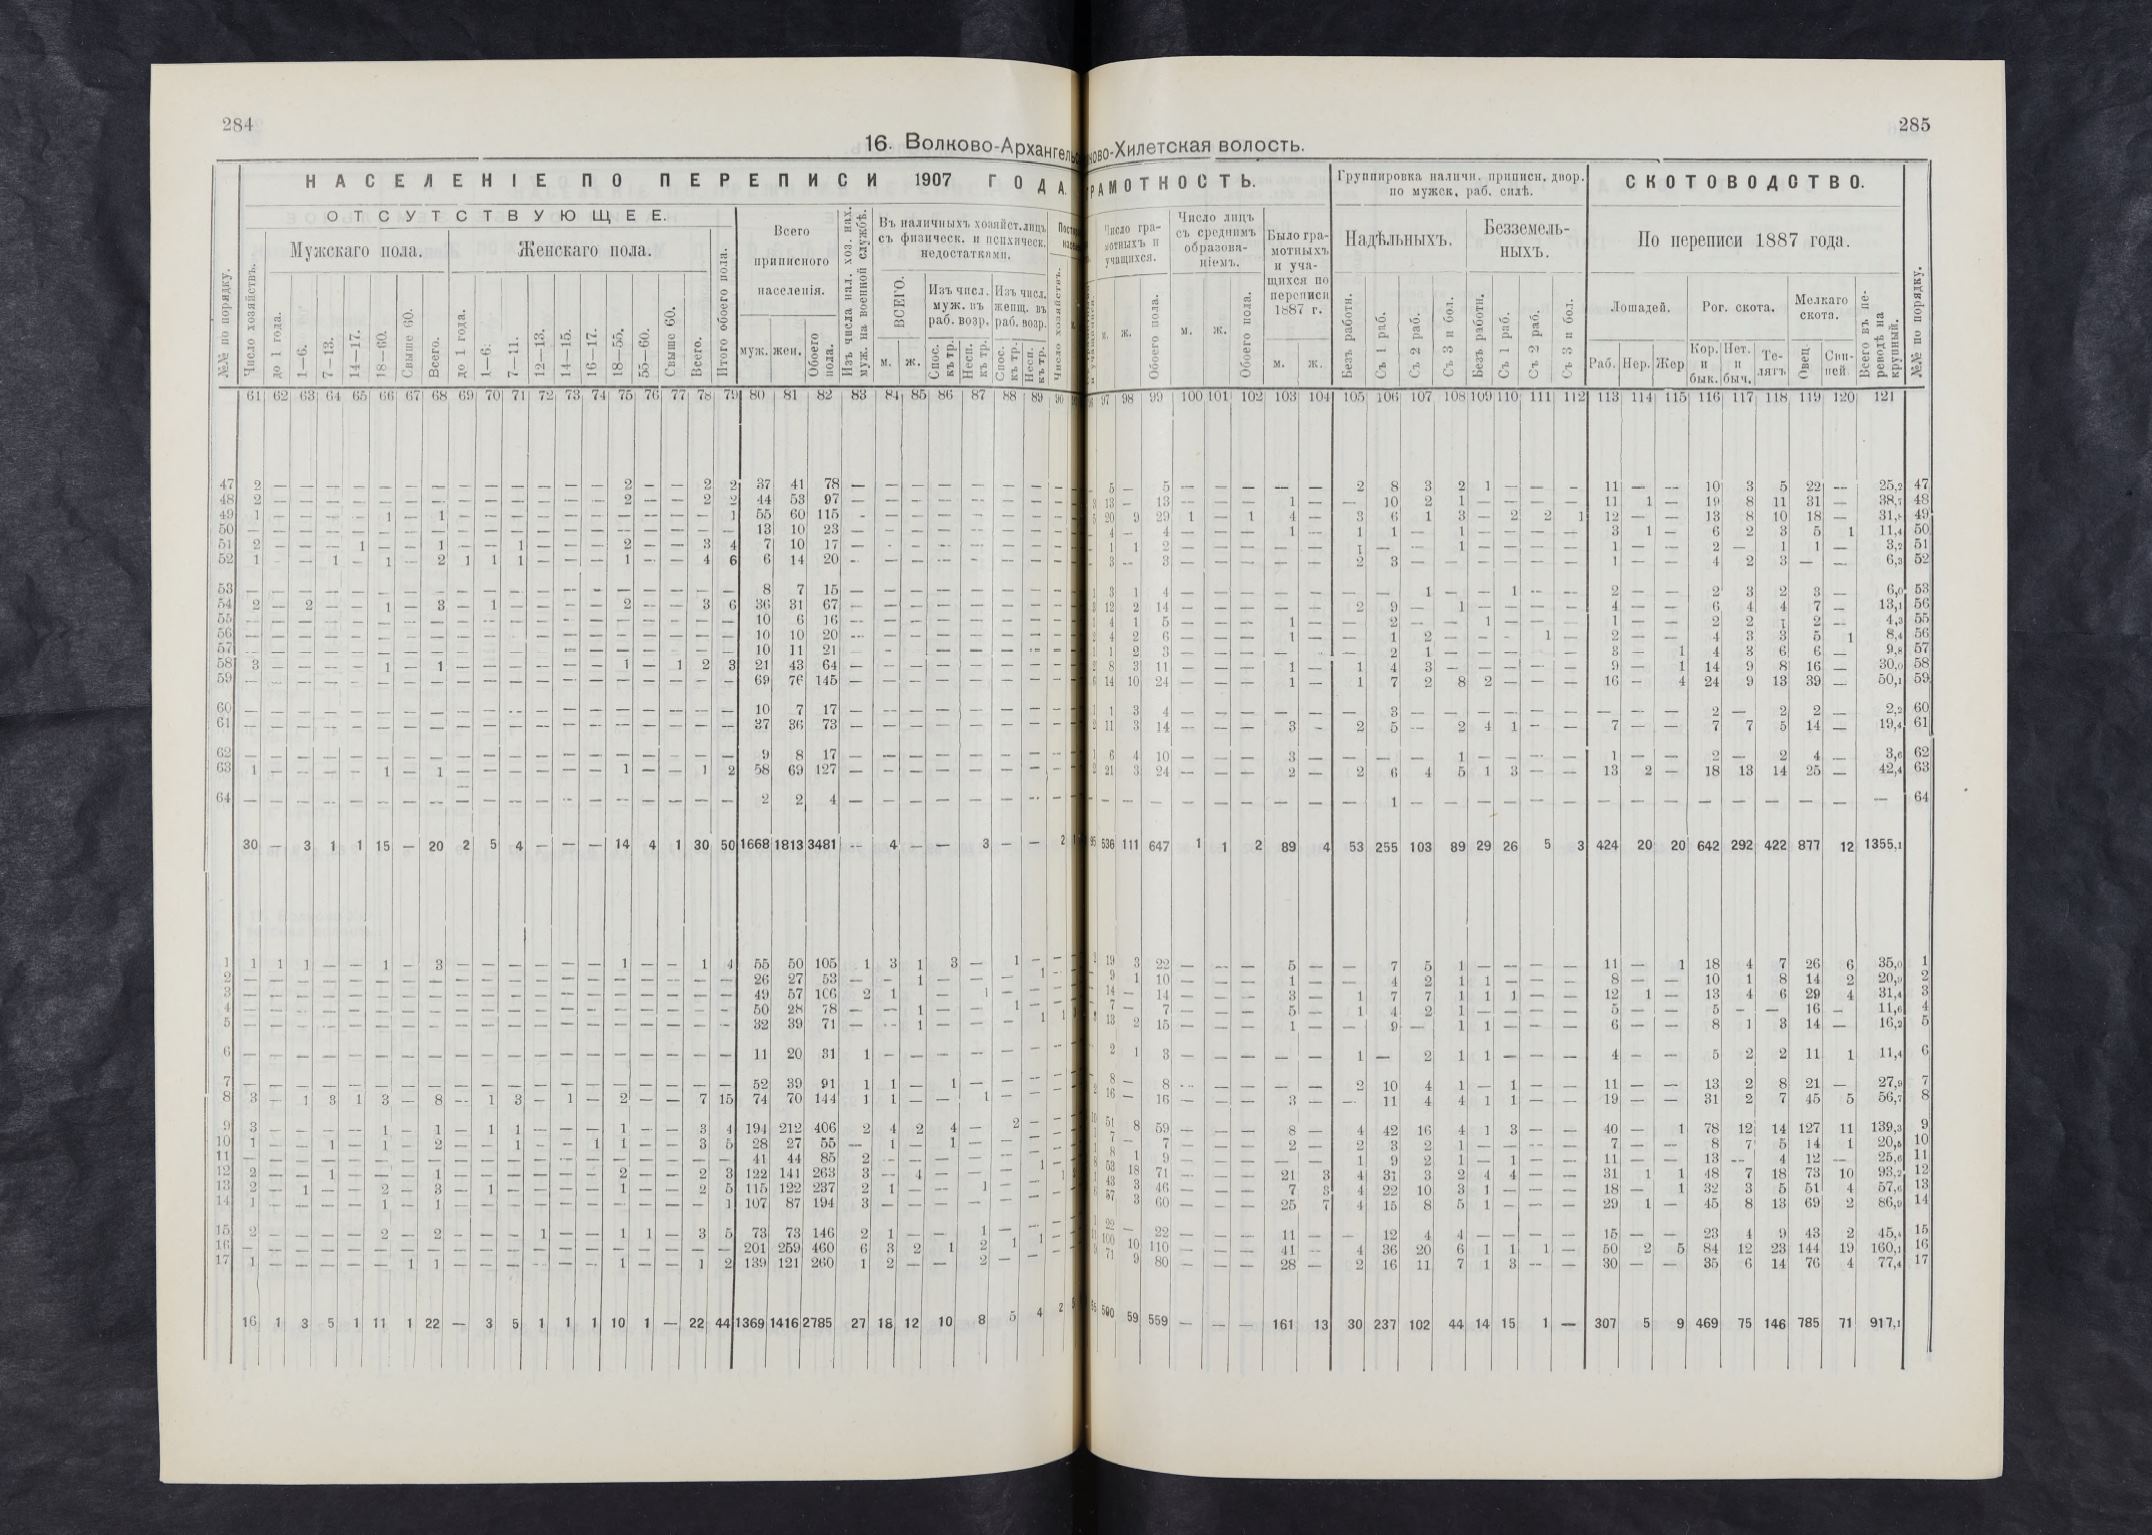 284
285
16. Волково-Архангельс
ково-Хилетская волость.
НАСЕЛЕНІЕ ПО ПЕРЕПИСИ 1907 ГОДА.
ОТСУТСТВУЮЩЕЕ.
Мужскаго пола.
Женскаго пола.
№№ по порядку.
Число хозяйствъ.
до 1 года. 1—6. 7—13. 14—17. 18—60. Свыше 60. Всего.
до 1 года. 1—6. 7—11. 12—13. 14—15. 16—17. 18—55. 55—60. Свыше 60. Всего.
Итого обоего пола.
Всего приписного населенія.
муж. жен. Обоего пола.
Изъ числа нал. хоз. нах. муж. на военной службѣ.
Въ наличныхъ хозяйст. лицъ съ физическ. и психическ. недостатками.
ВСЕГО.
м. ж.
Изъ числ. муж. въ раб. возр.
Изъ числ. женщ. въ раб. возр.
Спос. къ тр. Несп. къ тр. Спос. къ тр. Несп. къ тр.
Число хозяйствъ.
РАМОТНОСТЬ.
Число грамотныхъ и учащихся.
ж. Обоего пола.
Число лицъ съ среднимъ образованіемъ.
м. ж. Обоего пола.
Было грамотныхъ и учащихся по переписи 1887 г.
м. ж.
Группировка наличн. приписн. двор. по мужск. раб. силѣ.
Надѣльныхъ.
Безземельныхъ.
Безъ работн. Съ 1 раб. Съ 2 раб. Съ 3 и бол. Безъ работн. Съ 1 раб. Съ 2 раб. Съ 3 и бол.
СКОТОВОДСТВО.
По переписи 1887 года.
Лошадей. Рог. скота. Мелкаго скота.
Раб. Нер. Жер. Кор. и бык. Нет. и быч. Телятъ Овец. Свиней.
Всего въ переводѣ на крупный.
№№ по порядку.
61 62 63 64 65 66 67 68 69 70 71 72 73 74 75 76 77 78 79 80 81 82 83 84 85 86 87 88 89 90
97 98 99 100 101 102 103 104 105 106 107 108 109 110 111 112 113 114 115 116 117 118 119 120 121
47 2 — — — — — — — — — — — — — 2 — — 2 2 37 41 78 — — — — — — — —
5 — 5 — — — — — 2 8 3 2 1 — — — 11 — — 10 3 5 22 — 25,2 47
48 2 — — — — — — — — — — — — — 2 — — 2 2 44 53 97 — — — — — — — —
13 — 13 — — — 1 — — 10 2 1 — — — — 11 1 — 19 8 11 31 — 38,7 48
49 1 — — — — 1 — 1 — — — — — — — — — — 1 55 60 115 — — — — — — — —
20 9 29 1 — 1 4 — 3 6 1 3 — 2 2 1 12 — — 13 8 10 18 — 31,8 49
50 — — — — — — — — — — — — — — — — — — — 13 10 23 — — — — — — — —
4 — 4 — — — 1 — 1 1 — 1 — — — — 3 1 — 6 2 3 5 1 11,4 50
51 2 — — — 1 — — 1 — — 1 — — — 2 — — 3 4 7 10 17 — — — — — — — —
1 1 2 — — — — — 1 — — 1 — — — — 1 — — 2 — 1 1 — 3,2 51
52 1 — — 1 — 1 — 2 1 1 1 — — — 1 — — 4 6 6 14 20 — — — — — — — —
3 — 3 — — — — — 2 3 — — — — — — 1 — — 4 2 3 — — 6,3 52
53 — — — — — — — — — — — — — — — — — — — 8 7 15 — — — — — — — —
3 1 4 — — — — — — — 1 — — 1 — — 2 — — 2 3 2 3 — 6,0 53
54 2 — 2 — — 1 — 3 — 1 — — — — 2 — — 3 6 36 31 67 — — — — — — — —
12 2 14 — — — — — 2 9 — 1 — — — — 4 — — 6 4 4 7 — 13,1 56
55 — — — — — — — — — — — — — — — — — — — 10 6 16 — — — — — — — —
4 1 5 — — — 1 — — 2 — — 1 — — — 1 — — 2 2 1 2 — 4,3 55
56 — — — — — — — — — — — — — — — — — — — 10 10 20 — — — — — — — —
4 2 6 — — — 1 — — 1 2 — — — 1 — 2 — — 4 3 3 5 1 8,4 56
57 — — — — — — — — — — — — — — — — — — — 10 11 21 — — — — — — — —
1 2 3 — — — — — — 2 1 — — — — — 3 — 1 4 3 6 6 — 9,8 57
58 3 — — — — 1 — 1 — — — — — — 1 — 1 2 3 21 43 64 — — — — — — — —
8 3 11 — — — 1 — 1 4 3 — — — — — 9 — 1 14 9 8 16 — 30,0 58
59 — — — — — — — — — — — — — — — — — — — 69 76 145 — — — — — — — —
14 10 24 — — — 1 — 1 7 2 8 2 — — — 16 — 4 24 9 13 39 — 50,1 59
60 — — — — — — — — — — — — — — — — — — — 10 7 17 — — — — — — — —
1 3 4 — — — — — — 3 — — — — — — — — — 2 — 2 2 — 2,2 60
61 — — — — — — — — — — — — — — — — — — — 37 36 73 — — — — — — — —
11 3 14 — — — 3 — 2 5 — 2 4 1 — — 7 — — 7 7 5 14 — 19,4 61
62 — — — — — — — — — — — — — — — — — — — 9 8 17 — — — — — — — —
6 4 10 — — — 3 — — — — 1 — — — — 1 — — 2 — 2 4 — 3,6 62
63 1 — — — — 1 — 1 — — — — — — 1 — — 1 2 58 69 127 — — — — — — — —
21 3 24 — — — 2 — 2 6 4 5 1 3 — — 13 2 — 18 13 14 25 — 42,4 63
64 — — — — — — — — — — — — — — — — — — — 2 2 4 — — — — — — — —
— — — — — — — — — 1 — — — — — — — — — — — — — — — 64
30 — 3 1 1 15 — 20 2 5 4 — — — 14 4 1 30 50 1668 1813 3481 — 4 — — 3 — — 2
536 111 647 1 1 2 89 4 53 255 103 89 29 26 5 3 424 20 20 642 292 422 877 12 1355,1
1 1 1 1 — — 1 — 3 — — — — — — 1 — — 1 4 55 50 105 1 3 1 3 — 1 — —
19 3 22 — — — 5 — — 7 5 1 — — — — 11 — 1 18 4 7 26 6 35,0 1
2 — — — — — — — — — — — — — — — — — — — 26 27 53 — — 1 — — — 1 —
9 1 10 — — — 1 — — 4 2 1 1 — — — 8 — — 10 1 8 14 2 20,9 2
3 — — — — — — — — — — — — — — — — — — — 49 57 106 2 1 — — 1 — — —
14 — 14 — — — 3 — 1 7 7 1 1 1 — — 12 1 — 13 4 6 29 4 31,4 3
4 — — — — — — — — — — — — — — — — — — — 50 28 78 — — 1 — — 1 — —
7 — 7 — — — 5 — 1 4 2 1 — — — — 5 — — 5 — — 16 — 11,6 4
5 — — — — — — — — — — — — — — — — — — — 32 39 71 — — 1 — — — 1 1
13 2 15 — — — 1 — — 9 — 1 1 — — — 6 — — 8 1 3 14 — 16,2 5
6 — — — — — — — — — — — — — — — — — — — 11 20 31 1 — — — — — — —
2 1 3 — — — — — 1 — 2 1 1 — — — 4 — — 5 2 2 11 1 11,4 6
7 — — — — — — — — — — — — — — — — — — — 52 39 91 1 1 — 1 — — — —
8 — 8 — — — — — 2 10 4 1 — 1 — — 11 — — 13 2 8 21 — 27,9 7
8 3 — 1 3 1 3 — 8 — 1 3 — 1 — 2 — — 7 15 74 70 144 1 1 — — 1 — — —
16 — 16 — — — 3 — — 11 4 4 1 1 — — 19 — — 31 2 7 45 5 56,7 8
9 3 — — — — 1 — 1 — 1 1 — — — 1 — — 3 4 194 212 406 2 4 2 4 — 2 — —
51 8 59 — — — 8 — 4 42 16 4 1 3 — — 40 — 1 78 12 14 127 11 139,3 9
10 1 — — 1 — 1 — 2 — — 1 — — 1 1 — — 3 5 28 27 55 — 1 — 1 — — — —
7 — 7 — — — 2 — 2 3 2 1 — — — — 7 — — 8 7 5 14 1 20,5 10
11 — — — — — — — — — — — — — — — — — — — 41 44 85 2 — — — — — — —
8 1 9 — — — — — 1 9 2 1 — 1 — — 11 — — 13 — 4 12 — 25,6 11
12 2 — — 1 — — — 1 — — — — — — 2 — — 2 3 122 141 263 3 — 4 — — — 1 —
53 18 71 — — — 21 3 4 31 3 2 4 4 — — 31 1 1 48 7 18 73 10 93,2 12
13 2 — 1 — — 2 — 3 — 1 — — — — 1 — — 2 5 115 122 237 2 1 — — 1 — — 1
43 3 46 — — — 7 3 4 22 10 3 1 — — — 18 — 1 32 3 5 51 4 57,6 13
14 1 — — — — 1 — 1 — — — — — — — — — — 1 107 87 194 3 — — — — — — —
57 3 60 — — — 25 7 4 15 8 5 1 — — — 29 1 — 45 8 13 69 2 86,9 14
15 2 — — — — 2 — 2 — — — 1 — — 1 1 — 3 5 73 73 146 2 1 — — 1 — — —
22 — 22 — — — 11 — — 12 4 4 — — — — 15 — — 23 4 9 43 2 45,4 15
16 — — — — — — — — — — — — — — — — — — — 201 259 460 6 3 2 1 2 1 1 —
100 10 110 — — — 41 — 4 36 20 6 1 1 1 — 50 2 5 84 12 23 144 19 160,1 16
17 1 — — — — — 1 1 — — — — — — 1 — — 1 2 139 121 260 1 2 — — 2 — — —
71 9 80 — — — 28 — 2 16 11 7 1 3 — — 30 — — 35 6 14 76 4 77,4 17
16 1 3 5 1 11 1 22 — 3 5 1 1 1 10 1 — 22 44 1369 1416 2785 27 18 12 10 8 5 4 2
500 59 559 — — — 161 13 30 237 102 44 14 15 1 — 307 5 9 469 75 146 785 71 917,1